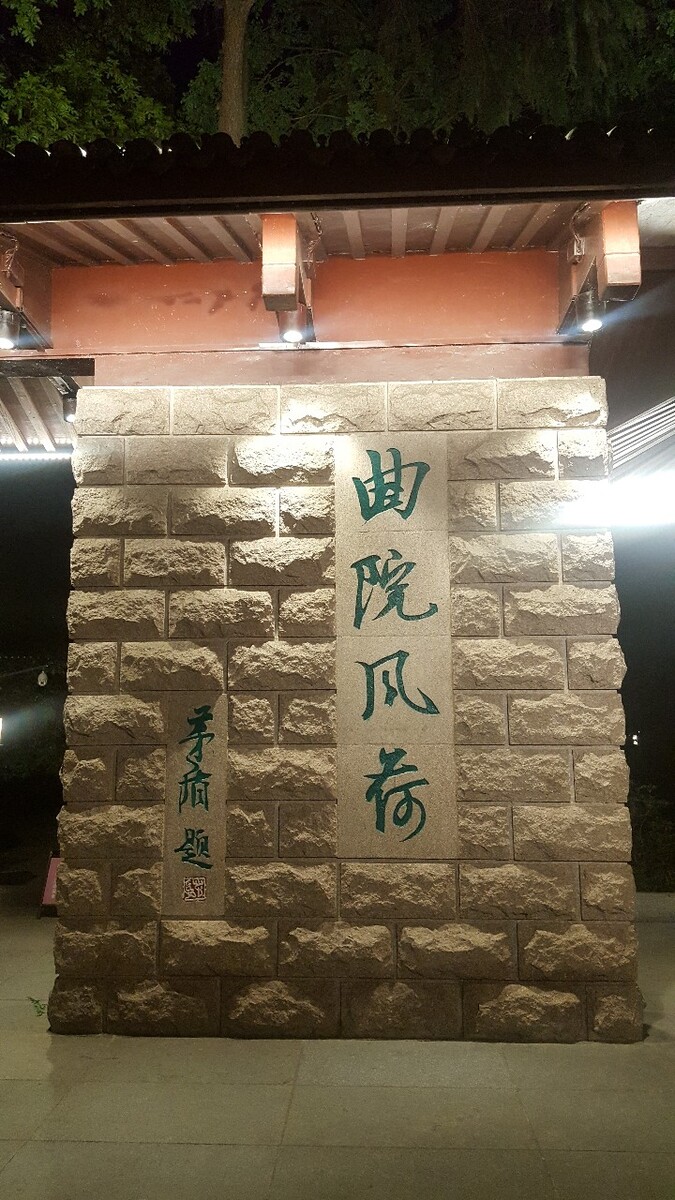 曲院风荷
茅盾题